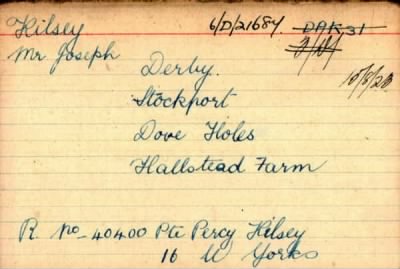 Kilsey
Mr Joseph
6/D/21684
DAK 31
15/8/20
Derby.
Stockport
Dove Holes
Hallstead Farm
R. No - 40400 Pte Percy Kilsey
16 W Yorks